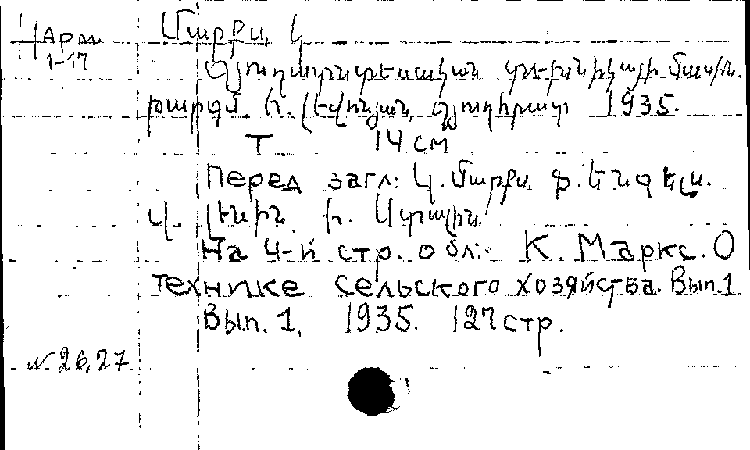 Чарм Մարքս, Կ
1-17
Գյուղատնտեսական տեխնիկայի մասին.
թարգմ. Ի. Լևոնյան, գյուղհրատ 1935.
T 14 см
Перед загл: Կ. Մարքս Ֆ. Ենգելս.
Վ. Լենին Ի. Ստալին
На 4-й стр. обл.: К. Маркс. О
технике сельского хозяйства. Вып.1
Вып. 1, 1935. 127 стр.
N 26,27